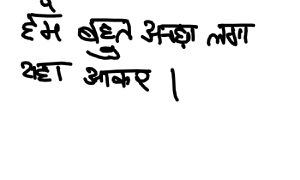 हमे बहुत अच्छा लगा
यहा आकर ।